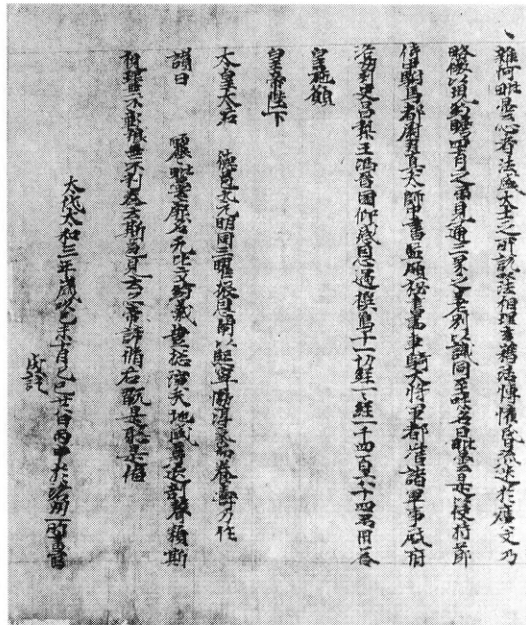 雜阿毗曇心者法盛大士之所說以法相理玄籍浩博懼昏流迷於廣文乃
略微以現約瞻四有之局見通三界之差別以識同至味名曰毗曇是使持節
侍中駙馬都尉羽真太師中書監領秘書事車騎大將軍都督諸軍事啟府
洛州刺史昌梨王馮晉國仰感恩遇撰寫十一切經一一經一千四百六十四卷用答
皇施願
皇帝陛下
太皇太后 德苞九元明同三曜振恩闡以熙寧協淳氣而養壽乃作
讚曰 麗麗毗曇厥名無比文約義豐總演天地盛尊延剖聲類斯
視理無不彰根無不利卷云斯苞見云亦帝諦修后翫是聰是備
大代太和三年歲次己未十月己巳廿八日丙申於洛州所書寫
成訖